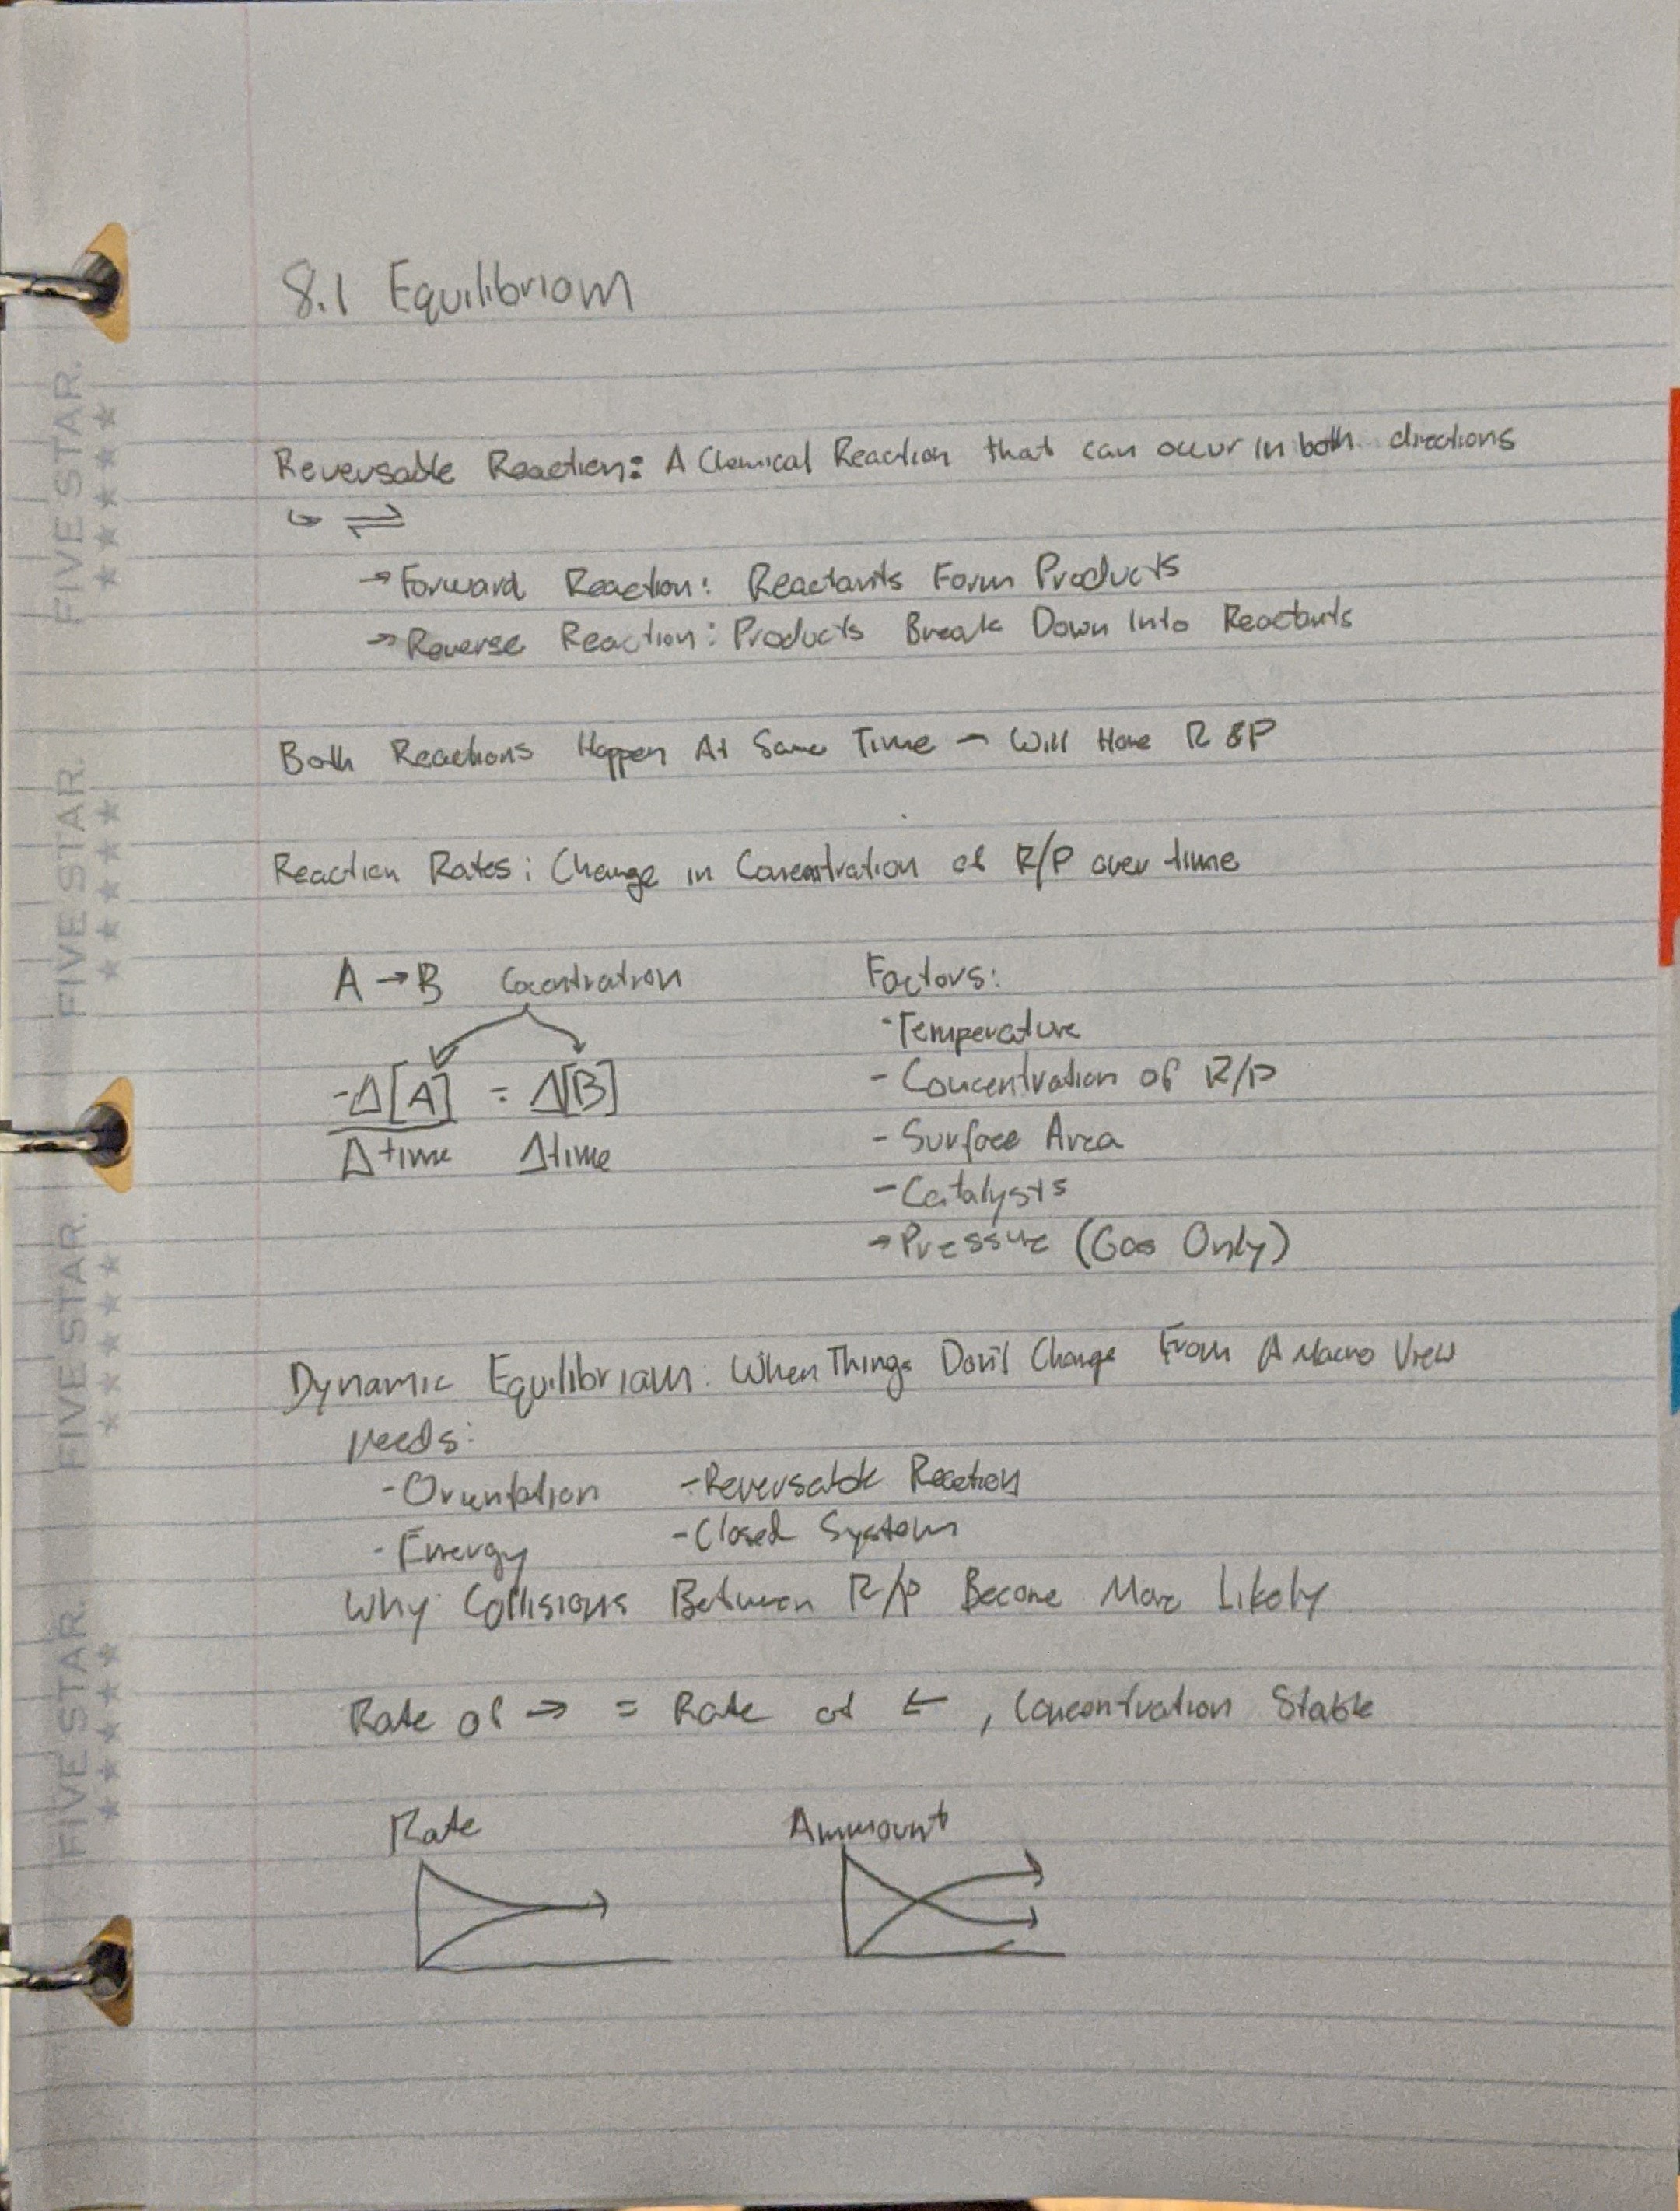 8.1 Equilibriam
Reversable Reaction: A Chemical Reaction that can occur in both directions
↳ ⇌
→ Forward Reaction: Reactants Form Products
→ Reverse Reaction: Products Break Down Into Reactants
Both Reactions Happen At Same Time - Will Have R & P
Reaction Rates: Change in Concentration of R/P over time
A → B Concentration
-Δ[A] = Δ[B]
Δtime Δtime
Factors:
- Temperature
- Concentration of R/P
- Surface Area
- Catalysts
→ Pressure (Gas Only)
Dynamic Equilibriam: When Things Don't Change From A Macro View
Needs:
- Orientation - Reversable Reaction
- Energy - Closed System
Why: Collisions Between R/P Become More Likely
Rate of → = Rate of ←, Concentration Stable
Rate Ammount
FIVE STAR.
FIVE STAR.
FIVE STAR.
FIVE STAR.